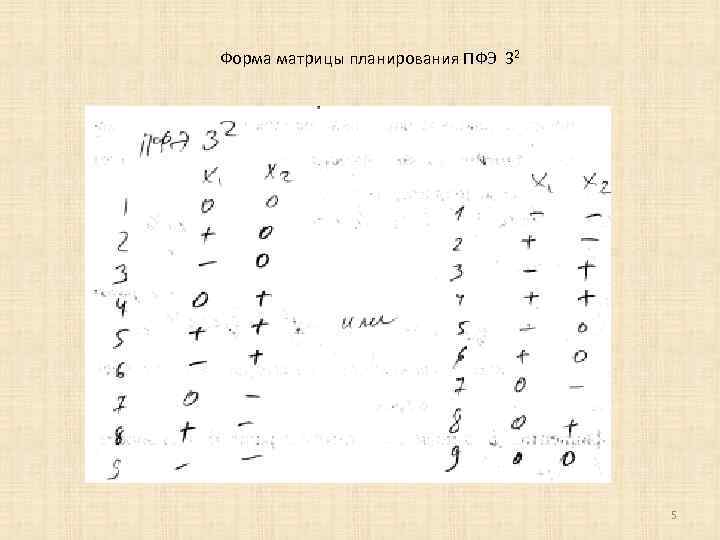 Форма матрицы планирования ПФЭ 3²
ПФЭ 3²
X₁ X₂
1 0 0
2 + 0
3 – 0
4 0 +
5 + +
6 – +
7 0 –
8 + –
9 – –
или
X₁ X₂
1 – –
2 + –
3 – +
4 + +
5 – 0
6 + 0
7 0 –
8 0 +
9 0 0
5